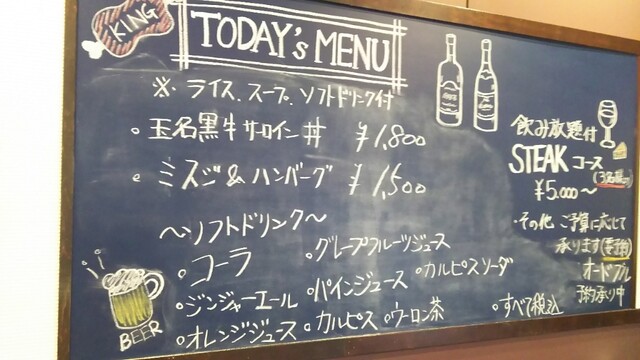 KING
TODAY's MENU
※ ライス、スープ、ソフトドリンク付
○ 玉名黒牛サーロイン丼 ¥1,800
○ ミスジ&ハンバーグ ¥1,500
〜ソフトドリンク〜
○コーラ
○グレープフルーツジュース
○ジンジャーエール
○パインジュース
○カルピスソーダ
○オレンジジュース
○カルピス
○ウーロン茶
○すべて税込
BEER
飲み放題付
STEAK コース
¥5,000〜
・その他 ご予算に応じて
承ります(要予約)
オードブル
予約承り中